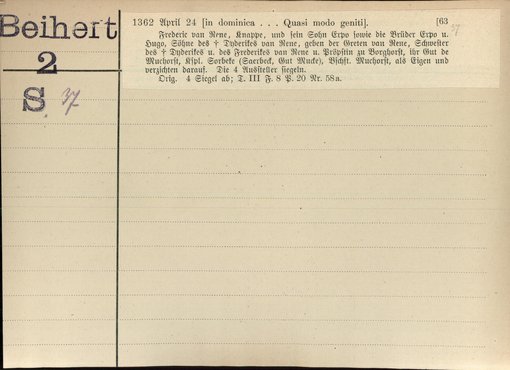 Beiheft
2
S 37
1362 April 24 [in dominica . . . Quasi modo geniti]. [63
Frederic van Nene, Knappe, und sein Sohn Erpo sowie die Brüder Erpo u.
Hugo, Söhne des † Dyderikes van Nene, geben der Greten van Nene, Schwester
des † Dyderikes u. des Frederikes van Nene u. Pröpstin zu Borghorst, ihr Gut de
Muchorst, Kspl. Sorbeke (Saerbeck, Gut Mucke), Bschst. Muchorst, als Eigen und
verzichten darauf. Die 4 Aussteller siegeln.
Orig. 4 Siegel ab; T. III F. 8 P. 20 Nr. 58a.